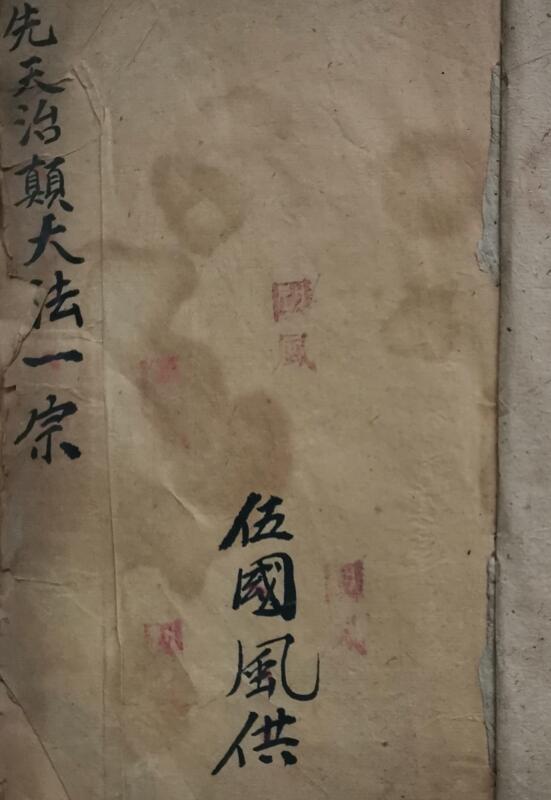 先天治顛大法一宗
國風
伍國風供